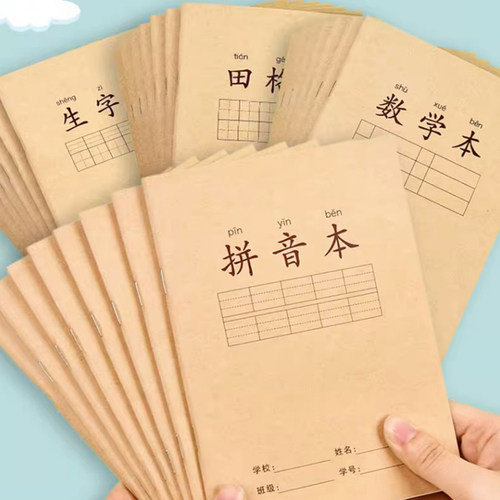 shēng zì
生字
tián gé
田格
shù xué běn
数学本
pīn yīn běn
拼音本
学校: 姓名:
班级: 学号: